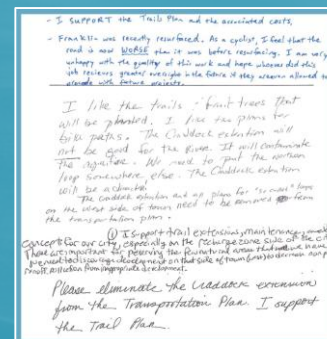 - I SUPPORT the Trails Plan and the associated costs.
- Franklin was recently resurfaced. As a cyclist, I feel that the
road is now WORSE than it was before resurfacing. I am very
unhappy with the quality of this work and hope whoever did this
job receives greater oversight in the future if they are allowed to
with future projects.
I like the trails : fruit trees that
will be planted. I like the plans for
bike paths. The Craddock extention will
not be good for the River. It will contaminate
the aquifer. We need to put the northern
loop somewhere else. The Craddock extention
will be a
The Craddock extention and plans for loops
on the west side of town need to be removed from
the transportation plan.
① I support trail extensions, maintenance, and
concepts for our city, especially on the recharge zone side of the
These are important for preserving the natural areas that we have
We need to discourage development on that side of town
protection from inappropriate development.
Please eliminate the Craddock extension
from the Transportation Plan. I support
the Trail Plan.